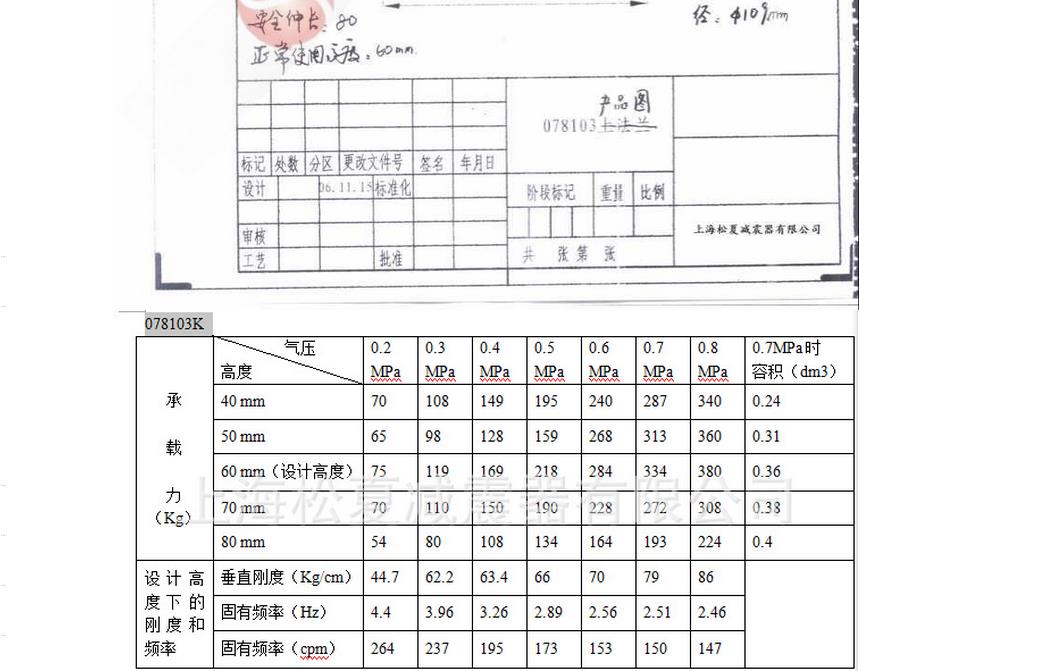 安全伸长：80
径：φ109mm
正常使用高度：60mm.
产品图
078103上法兰
标记 处数 分区 更改文件号 签名 年月日
设计 06.11.15 标准化
阶段标记 重量 比例
审核
上海松夏减震器有限公司
工艺 批准
共 张 第 张
078103K
承载力（Kg） 高度 气压 0.2 MPa 0.3 MPa 0.4 MPa 0.5 MPa 0.6 MPa 0.7 MPa 0.8 MPa 0.7MPa时容积（dm3）
40 mm 70 108 149 195 240 287 340 0.24
50 mm 65 98 128 159 268 313 360 0.31
60 mm（设计高度） 75 119 169 218 284 334 380 0.36
上海松夏减震器有限公司
70 mm 70 110 150 190 228 272 308 0.38
80 mm 54 80 108 134 164 193 224 0.4
设计高度下的刚度和频率 垂直刚度（Kg/cm） 44.7 62.2 63.4 66 70 79 86
固有频率（Hz） 4.4 3.96 3.26 2.89 2.56 2.51 2.46
固有频率（cpm） 264 237 195 173 153 150 147